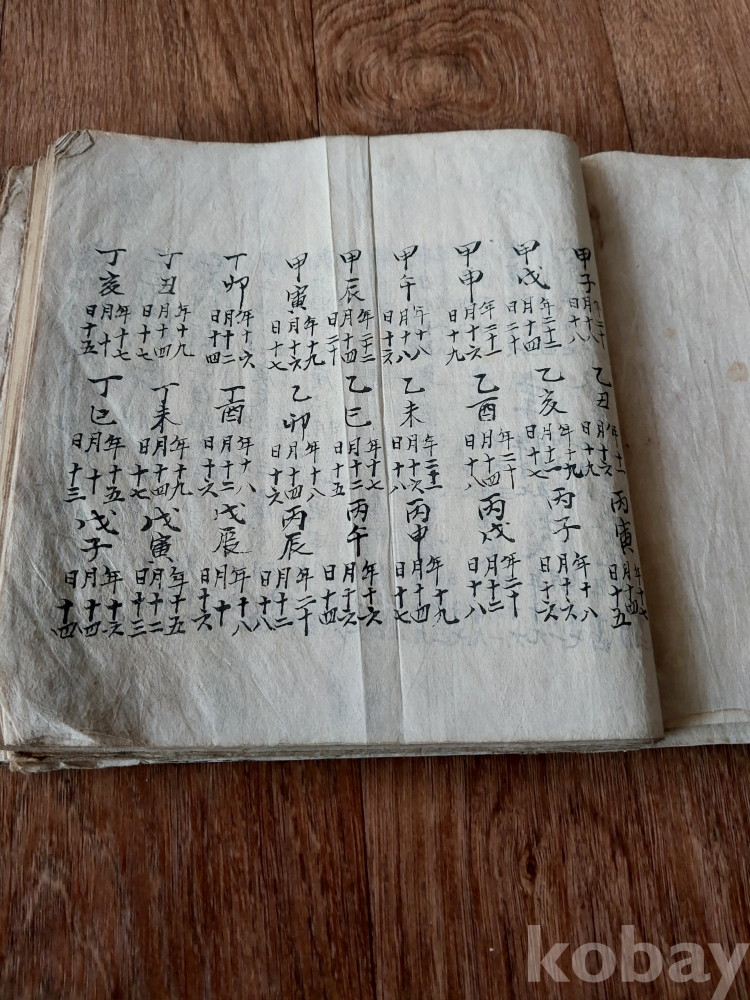 甲子
年二十
日十八
乙丑
月十六
日十九
丙寅
年十七
月十四
日十五
甲戌
年二十二
月十四
日二十
乙亥
年十九
月十二
日十七
丙子
年十八
月十六
日十六
甲申
年二十一
月十六
日十九
乙酉
年二十
月十四
日十八
丙戌
年二十
月十二
日十八
甲午
年十八
月十八
日十六
乙未
年二十一
月十六
日十八
丙申
年十九
月十四
日十七
甲辰
年二十二
月十四
日二十
乙巳
年十七
月十二
日十五
丙午
年十六
月十六
日十四
甲寅
年十九
月十六
日十七
乙卯
年十八
月十四
日十六
丙辰
年二十
月十二
日十八
丁卯
年十六
月十二
日十四
丁酉
年十八
月十二
日十六
戊辰
年十八
月十
日十六
丁丑
年十九
月十四
日十七
丁未
年十九
月十四
日十七
戊寅
年十五
月十二
日十三
丁亥
年十七
月十
日十五
丁巳
年十五
月十
日十三
戊子
年十六
月十四
日十四
kobay